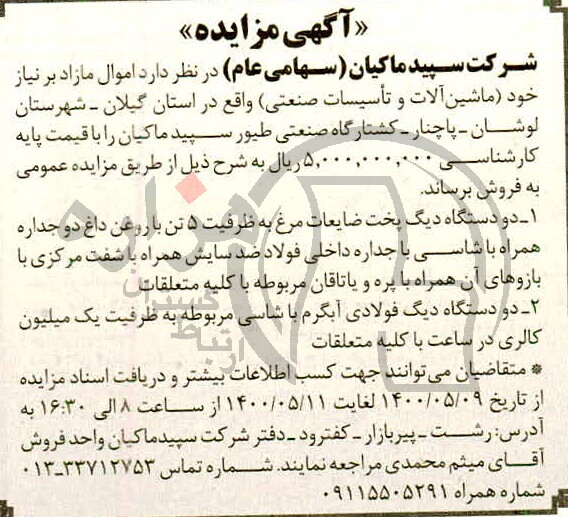 «آگهی مزایده»
شرکت سپید ماکیان (سهامی عام) در نظر دارد اموال مازاد بر نیاز
خود (ماشین‌آلات و تأسیسات صنعتی) واقع در استان گیلان ـ شهرستان
لوشان ـ پاچنار ـ کشتارگاه صنعتی طیور سپید ماکیان را با قیمت پایه
کارشناسی ۵,۰۰۰,۰۰۰,۰۰۰ ریال به شرح ذیل از طریق مزایده عمومی
به فروش برساند.
۱ـ دو دستگاه دیگ پخت ضایعات مرغ به ظرفیت ۵ تن با روغن داغ دو جداره
همراه با شاسی با جداره داخلی فولاد ضد سایش همراه با شفت مرکزی با
بازوهای آن همراه با پره و یاتاقان مربوطه با کلیه متعلقات
۲ـ دو دستگاه دیگ فولادی آبگرم با شاسی مربوطه به ظرفیت یک میلیون
کالری در ساعت با کلیه متعلقات
* متقاضیان می‌توانند جهت کسب اطلاعات بیشتر و دریافت اسناد مزایده
از تاریخ ۱۴۰۰/۰۵/۰۹ لغایت ۱۴۰۰/۰۵/۱۱ از ساعت ۸ الی ۱۶:۳۰ به
آدرس: رشت ـ پیربازار ـ کفترود ـ دفتر شرکت سپید ماکیان واحد فروش
آقای میثم محمدی مراجعه نمایند. شماره تماس ۳۳۷۱۲۷۵۳-۰۱۳
شماره همراه ۰۹۱۱۵۵۰۵۲۹۱
هزاره
گستران
ارتباط